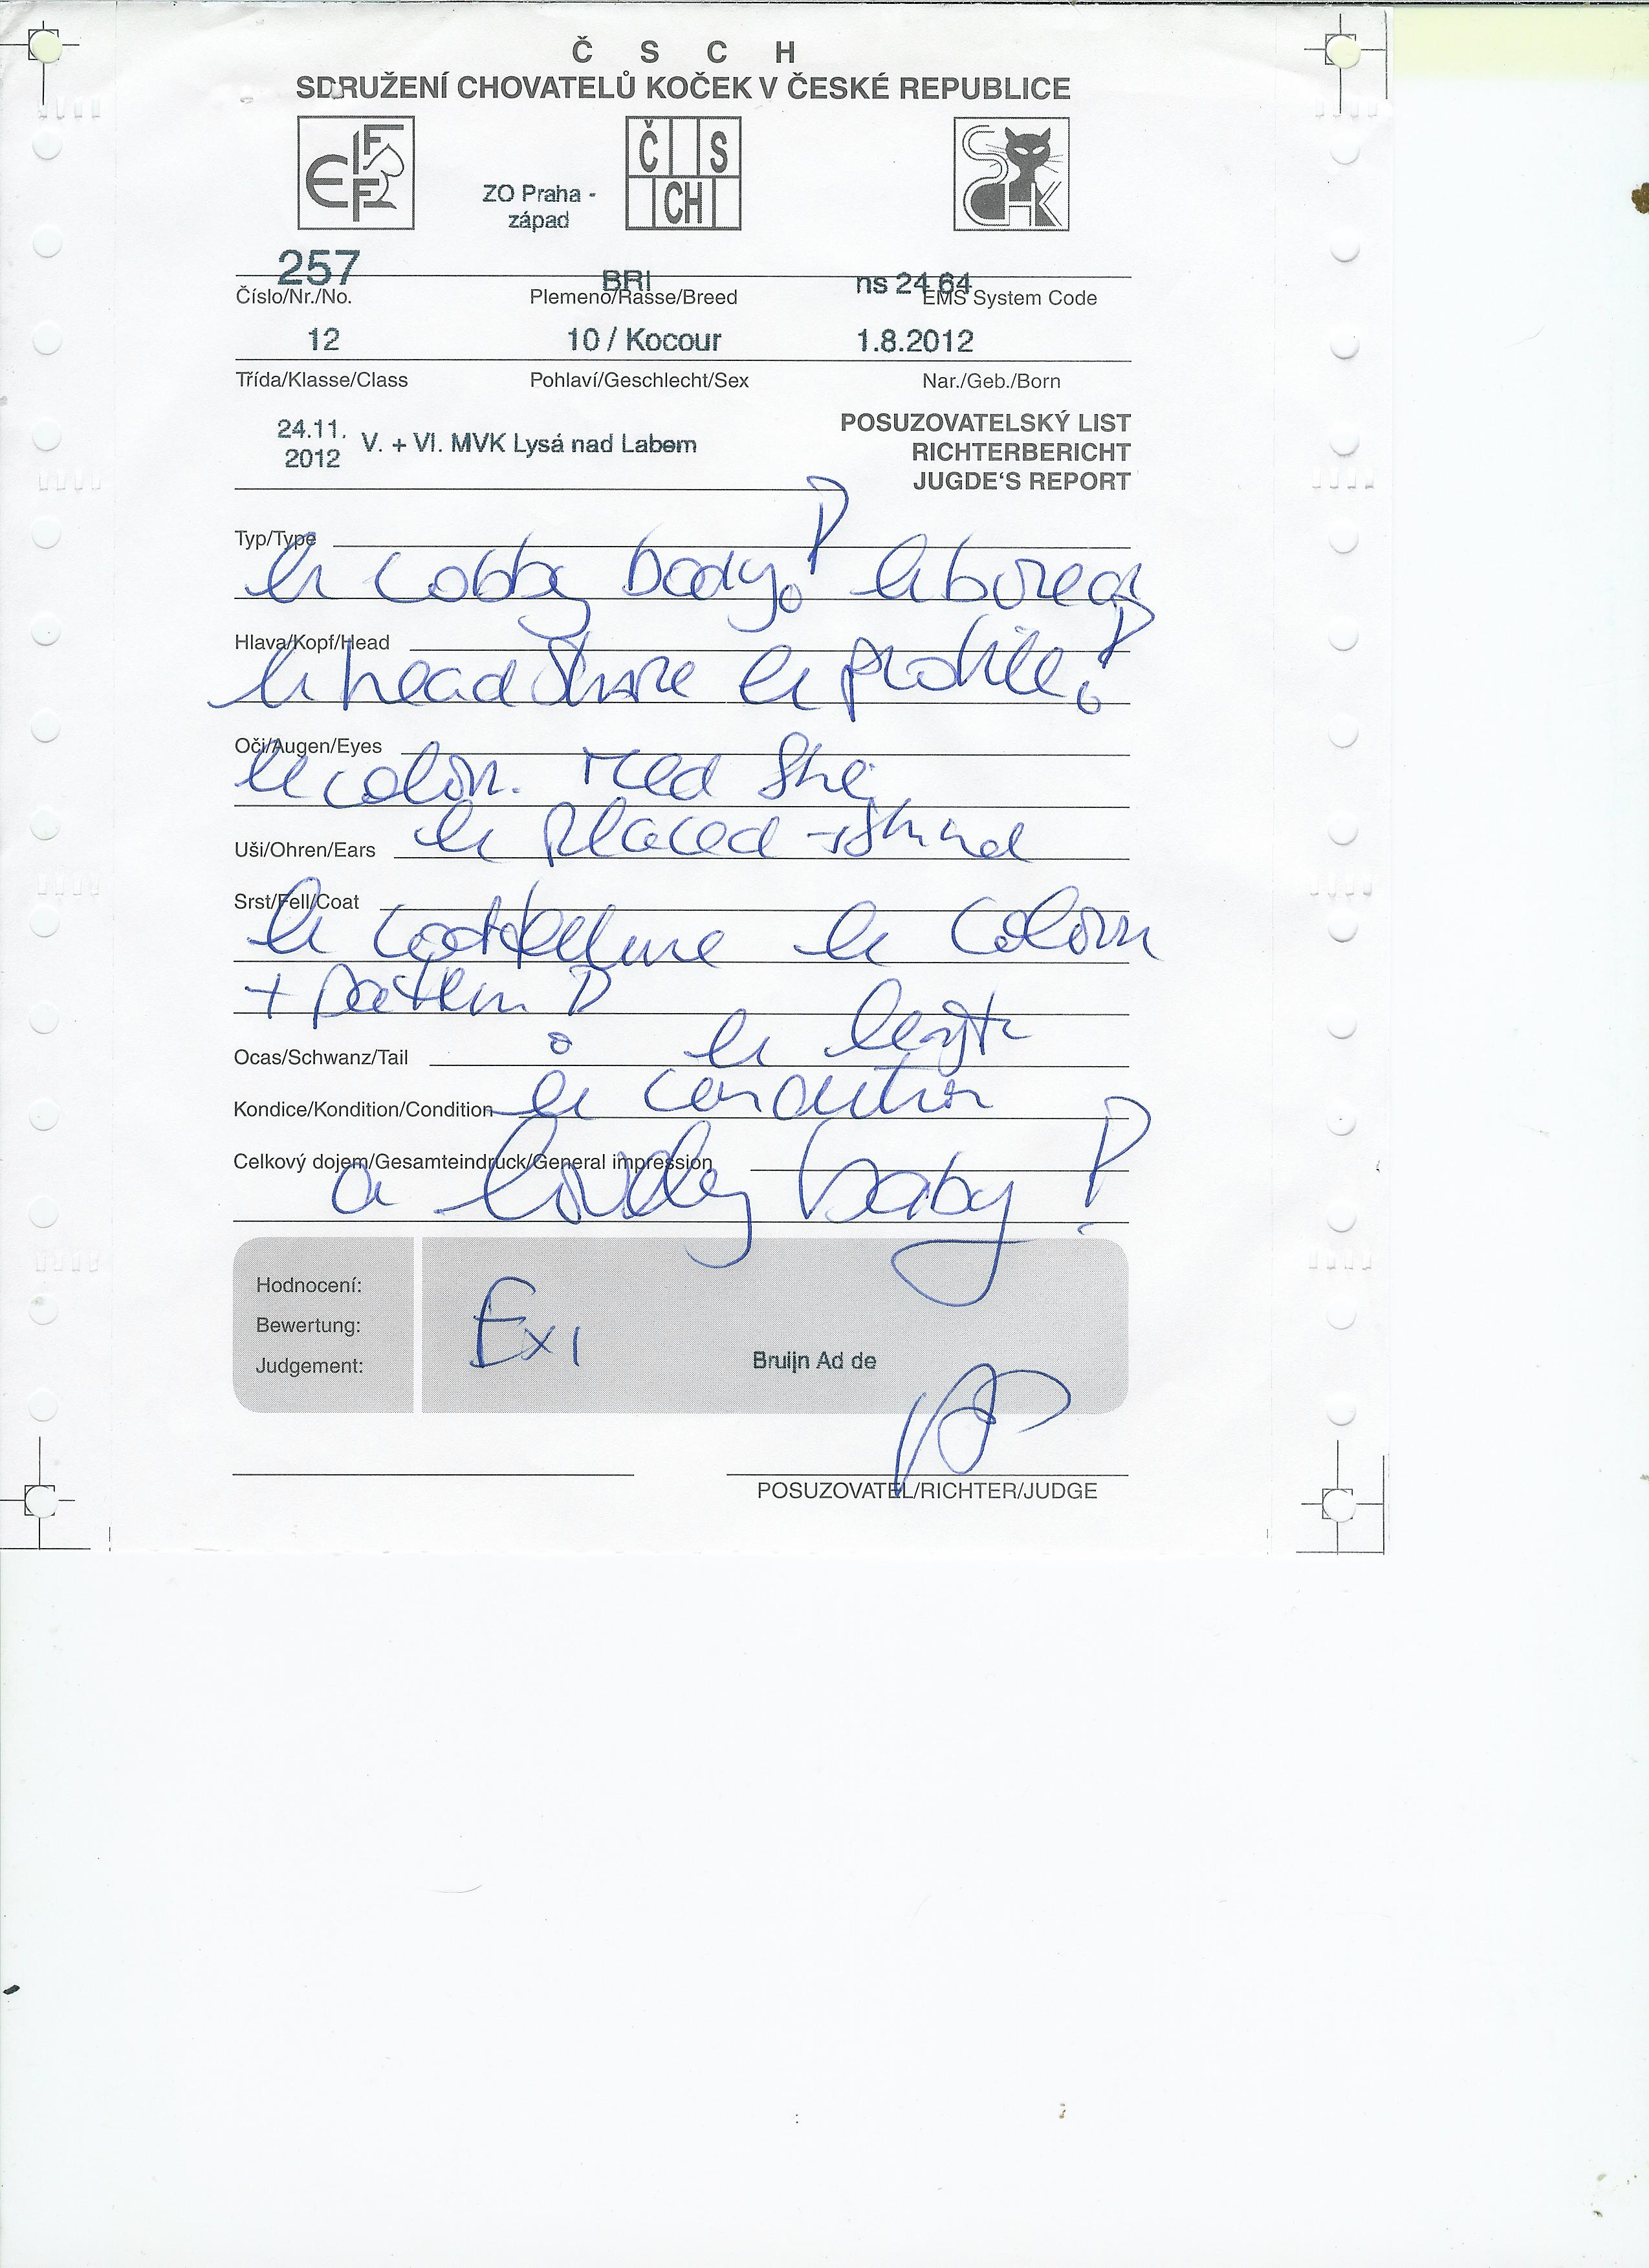 Č S C H
SDRUŽENÍ CHOVATELŮ KOČEK V ČESKÉ REPUBLICE
FIFe
ZO Praha -
západ
Č S
CH
SCHK
257 BRI ns 24 64
Číslo/Nr./No. Plemeno/Rasse/Breed EMS System Code
12 10 / Kocour 1.8.2012
Třída/Klasse/Class Pohlaví/Geschlecht/Sex Nar./Geb./Born
24.11.
2012 V. + VI. MVK Lysá nad Labem
POSUZOVATELSKÝ LIST
RICHTERBERICHT
JUGDE'S REPORT
Typ/Type
cobby body!
Hlava/Kopf/Head
head profile!
Oči/Augen/Eyes
colour.
Uši/Ohren/Ears placed
Srst/Fell/Coat
colour
+ pattern!
Ocas/Schwanz/Tail length
Kondice/Kondition/Condition condition
Celkový dojem/Gesamteindruck/General impression
a lovely baby!
Hodnocení:
Bewertung:
Judgement:
Ex1
Bruijn Ad de
POSUZOVATEL/RICHTER/JUDGE